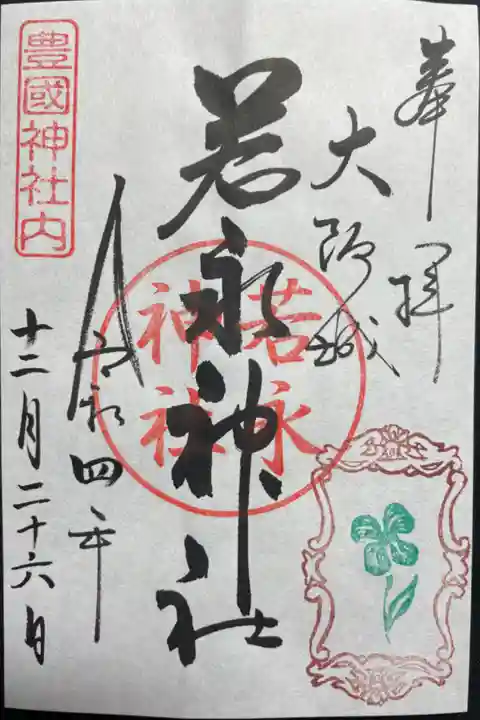 奉拝
大阪城
若永神社
若永神社
令和四年
十二月二十六日
豊國神社内